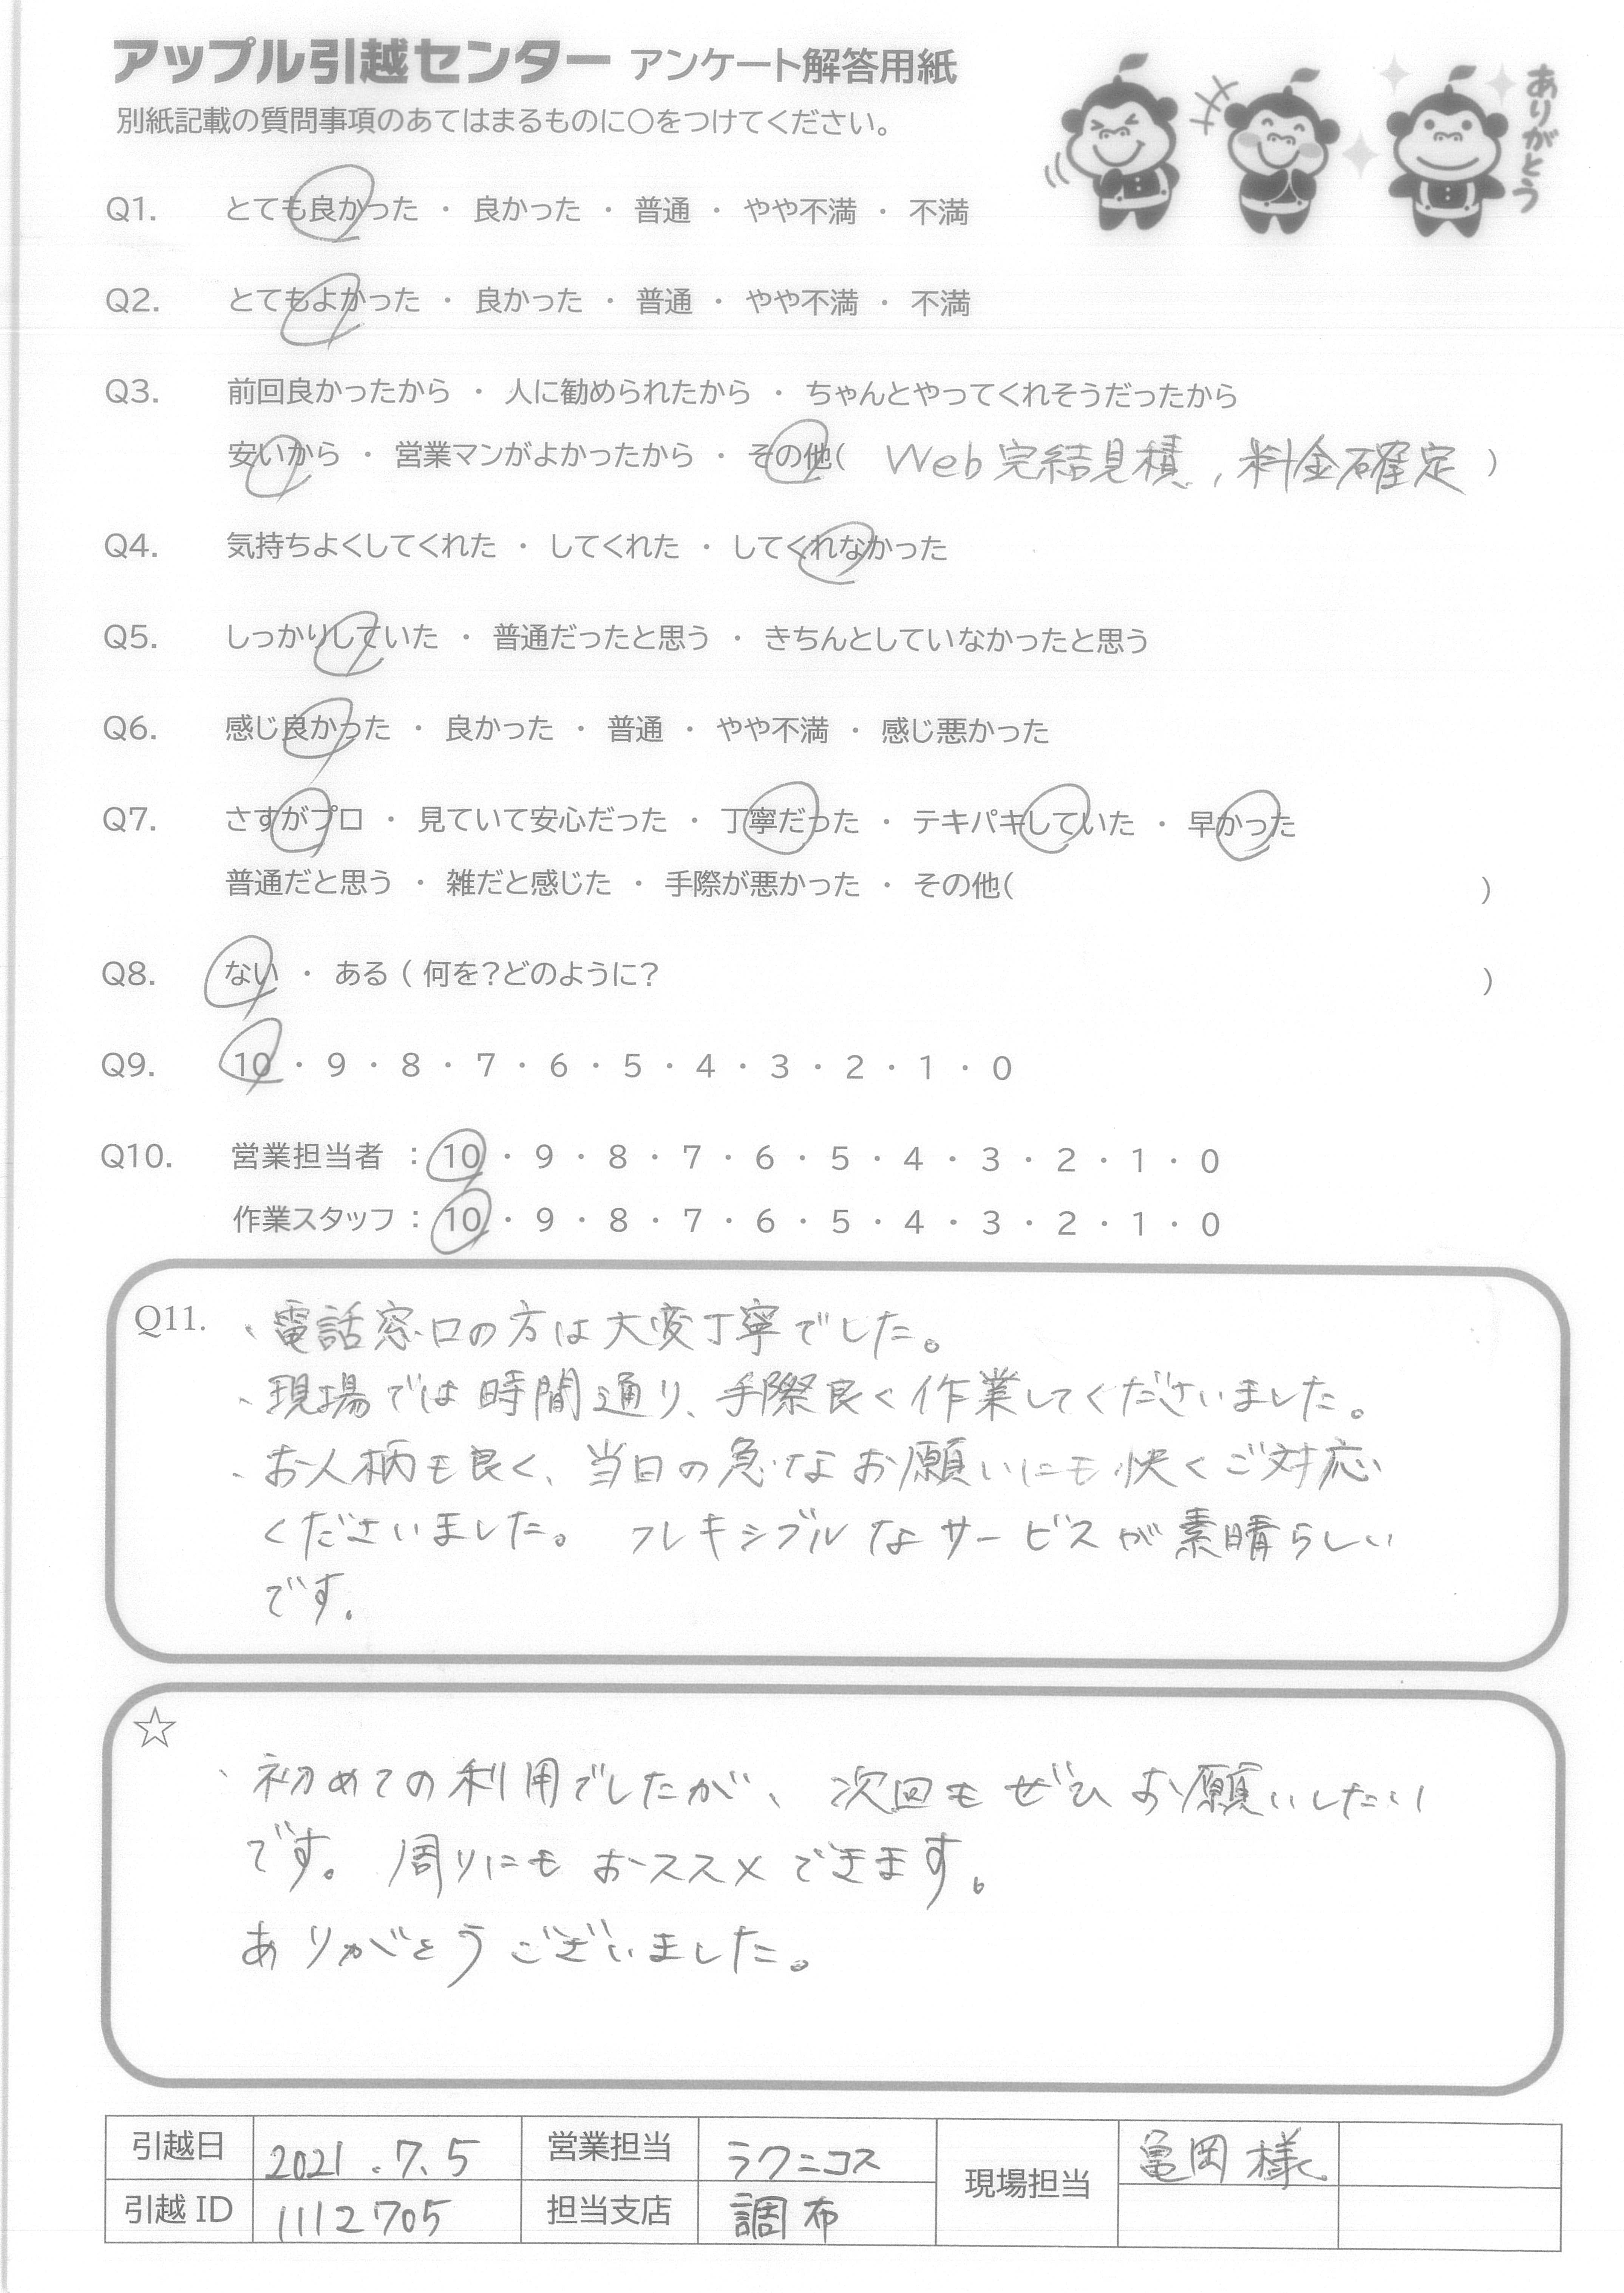 アップル引越センター アンケート解答用紙
別紙記載の質問事項のあてはまるものに○をつけてください。
ありがとう
Q1. とても良かった ・ 良かった ・ 普通 ・ やや不満 ・ 不満
Q2. とてもよかった ・ 良かった ・ 普通 ・ やや不満 ・ 不満
Q3. 前回良かったから ・ 人に勧められたから ・ ちゃんとやってくれそうだったから
安いから ・ 営業マンがよかったから ・ その他( Web完結見積, 料金確定 )
Q4. 気持ちよくしてくれた ・ してくれた ・ してくれなかった
Q5. しっかりしていた ・ 普通だったと思う ・ きちんとしていなかったと思う
Q6. 感じ良かった ・ 良かった ・ 普通 ・ やや不満 ・ 感じ悪かった
Q7. さすがプロ ・ 見ていて安心だった ・ 丁寧だった ・ テキパキしていた ・ 早かった
普通だと思う ・ 雑だと感じた ・ 手際が悪かった ・ その他( )
Q8. ない ・ ある ( 何を?どのように? )
Q9. 10 ・ 9 ・ 8 ・ 7 ・ 6 ・ 5 ・ 4 ・ 3 ・ 2 ・ 1 ・ 0
Q10. 営業担当者 : 10 ・ 9 ・ 8 ・ 7 ・ 6 ・ 5 ・ 4 ・ 3 ・ 2 ・ 1 ・ 0
作業スタッフ : 10 ・ 9 ・ 8 ・ 7 ・ 6 ・ 5 ・ 4 ・ 3 ・ 2 ・ 1 ・ 0
Q11. ・電話窓口の方は大変丁寧でした。
・現場では時間通り、手際良く作業してくださいました。
・お人柄も良く、当日の急なお願いにも快くご対応
くださいました。 フレキシブルなサービスが素晴らしい
です。
☆
・初めての利用でしたが、次回もぜひお願いしたい
です。周りにもおススメできます。
ありがとうございました。
引越日 2021.7.5 営業担当 ラクニコス 現場担当 亀岡様
引越ID 1112705 担当支店 調布